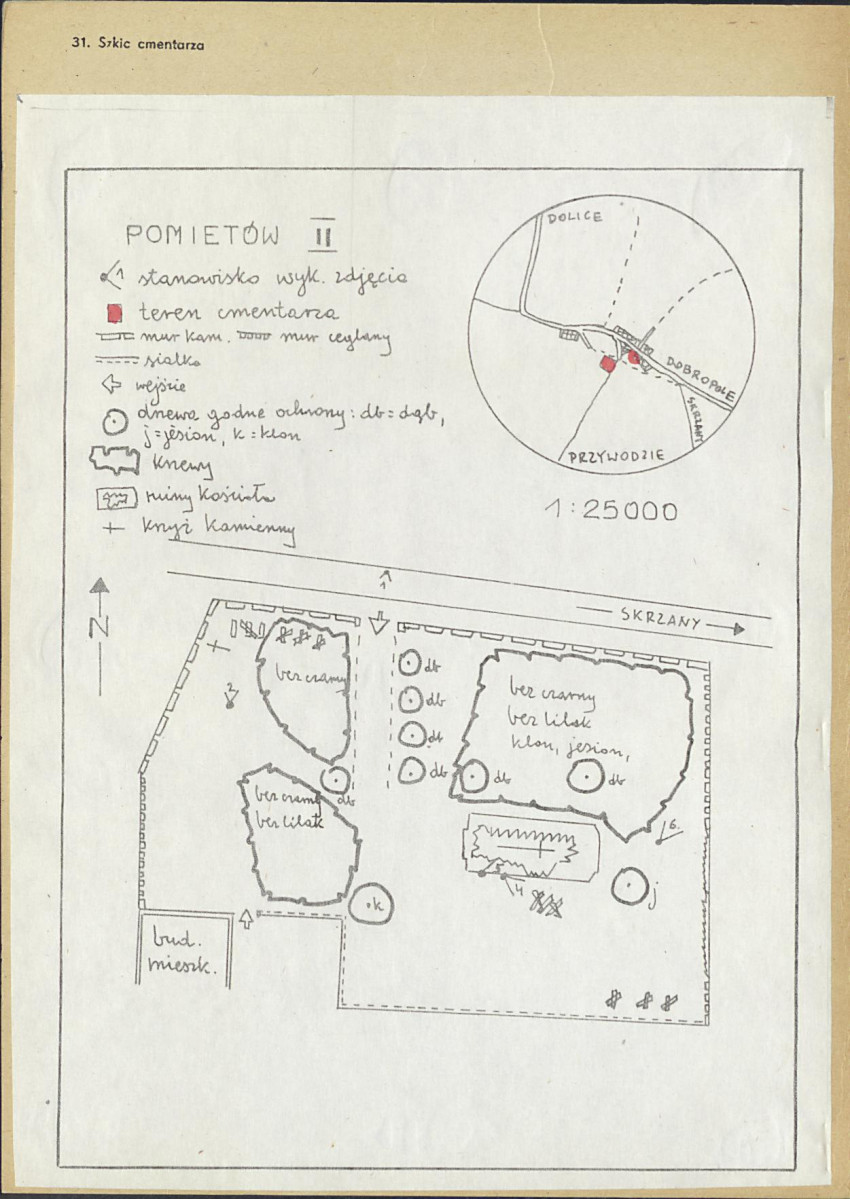 31. Szkic cmentarza
POMIETÓW II
1 stanowisko wyk. zdjęcia
teren cmentarza
mur kam. mur ceglany
siatka
wejście
drzewa godne ochrony: db = dąb,
j = jesion, k = klon
krzewy
ruiny kościoła
krzyż kamienny
DOLICE
DOBROPOLE
SKRZANY
PRZYWODZIE
1:25000
N
1
SKRZANY
2
bez czarny
db
db
db
db
bez czarny
bez lilak
klon, jesion,
db
db
db
bez czarny
bez lilak
6.
5
4
j
k
bud.
mieszk.